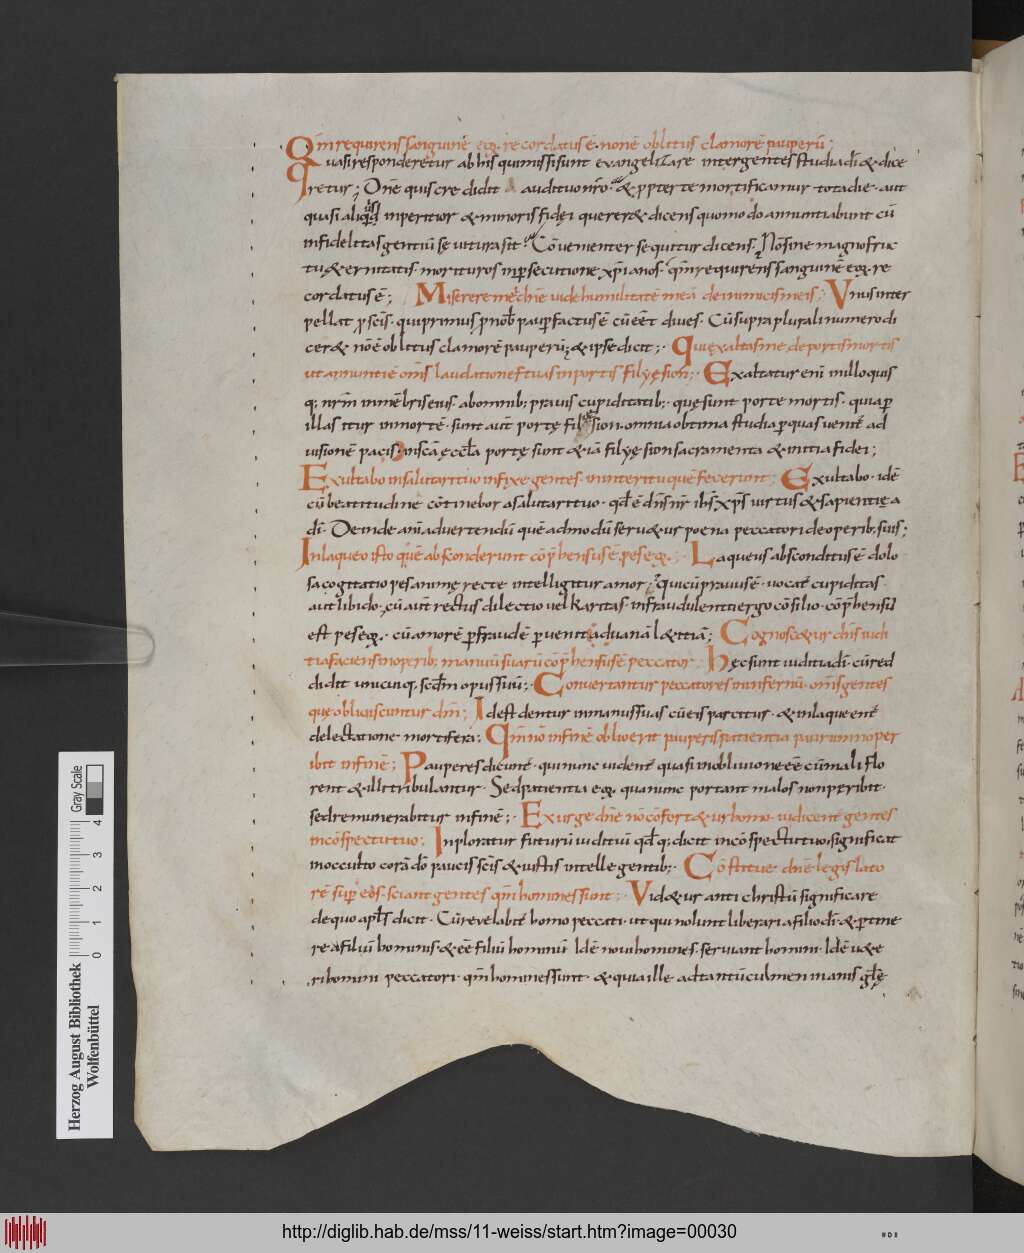 Qm̄ requirens sanguinē eoꝝ recordatus ē. non ē oblitus clamorē pauperū;
Quasi responderetur ab his qui missi sunt evangelizare inter gentes studia dī & dice
retur; Dn̄e quis credidit auditui nr̄o. & ppter te mortificamur tota die. aut
quasi aliquis inperitior & minoris fidei quereret dicens quomodo annuntiabunt cū
infidelitas gentiū sęviturasit. Cōvenienter sequitur dicens. Nō sine magno fruc
tu & ernitatis morituros in psecutione xp̄ianos. qm̄ requirens sanguinē eoꝝ re
cordatus ē; Miserere mei dn̄e vide humilitatē meā de inimicis meis; Vnus inter
pellat p scis. qui primus p nob̄ paup factus ē cū eēt dives. Cū supra plurali numero di
cer& nō ē oblitus clamorē pauperū; & ipse dicit; Qui exaltas me de portis mortis
ut annuntiē om̄s laudationes tuas in portis filyę sion; Exaltatur enī in illo quis
q; nr̄m in mēbris eius. ab omnib; pravis cupiditatib; quę sunt portę mortis. quia p
illas itur in mortē. sunt aut̄ portę filyę sion. omnia obtima studia p quas venit̄ ad
visionē pacis. in scā ęcclā portę sunt & iā filyę sion sacramenta & initia fidei;
Exultabo in salutari tuo infixę gentes in interitu quē fecerunt; Exultabo. idē
cū beatitudine cōtinebor a salutari tuo. qd̄ ē dn̄s nr̄ ihs xp̄s virtus & sapientię a
dī. Deinde animadvertendū quē admodū servetur poena peccatori de operib; suis;
In laqueo isto quē absconderunt cōp̄hensus ē pes eoꝝ; Laqueus absconditus ē dolo
sa cogitatio pes animę recte intelligitur amor; qui cū pravus ē. vocat̄ cupiditas.
aut libido; cū aut̄ rectus dilectio vel karitas. in fraudulenti ergo cōsilio. cōp̄hensus
est pes eoꝝ. cū amorē p fraudē pvenit ad vanā l&itiā; Cognosc&ur dn̄s iudi
tia faciens in operib; manuū suarū cōp̄hensus ē peccator. Hęc sunt iuditia dī. cū red
didit unicuiq. scd̄m opus suū; Convertantur peccatores in infernū. om̄s gentes
quę obliviscuntur dm̄; Id est dentur in manus suas cū eis parcitur. & in laqueent̄
delectatione mortifera; Qm̄ nō in finē oblivio erit pauperis patientia pauperum nō per
ibit in finē; Pauperes dicunt̄. qui nunc vident̄ quasi in oblivione eē cū mali flo
rent & illi tribulantur. Sed patientia eoꝝ. qua nunc portant malos non peribit.
sed remunerabitur in finē; Exurge dn̄e nō cōfort&ur homo. iudicent̄ gentes
in cōspectu tuo; Inploratur futurū iuditiū qd̄ q; dicit in cōspectu tuo. significat
in occulto corā dō paucis scīs & iustis intellegentib; Cōstitue dn̄e legislato
rē sup eos. sciant gentes qm̄ homines sunt; Vid&ur anti christū significare.
de quo apls̄ dicit. Cū revelabit̄ homo peccati. ut qui nolunt liberari a filio dī. & ptine
re a filiū hominis. & eē filiū hominū. Idē novi homines. serviant homini. Idē v&e
ri homini peccatori. qm̄ homines sunt. & quia ille ad tantū culmen inanis glę
Herzog August Bibliothek
Wolfenbüttel
Gray Scale
0 1 2 3 4
http://diglib.hab.de/mss/11-weiss/start.htm?image=00030